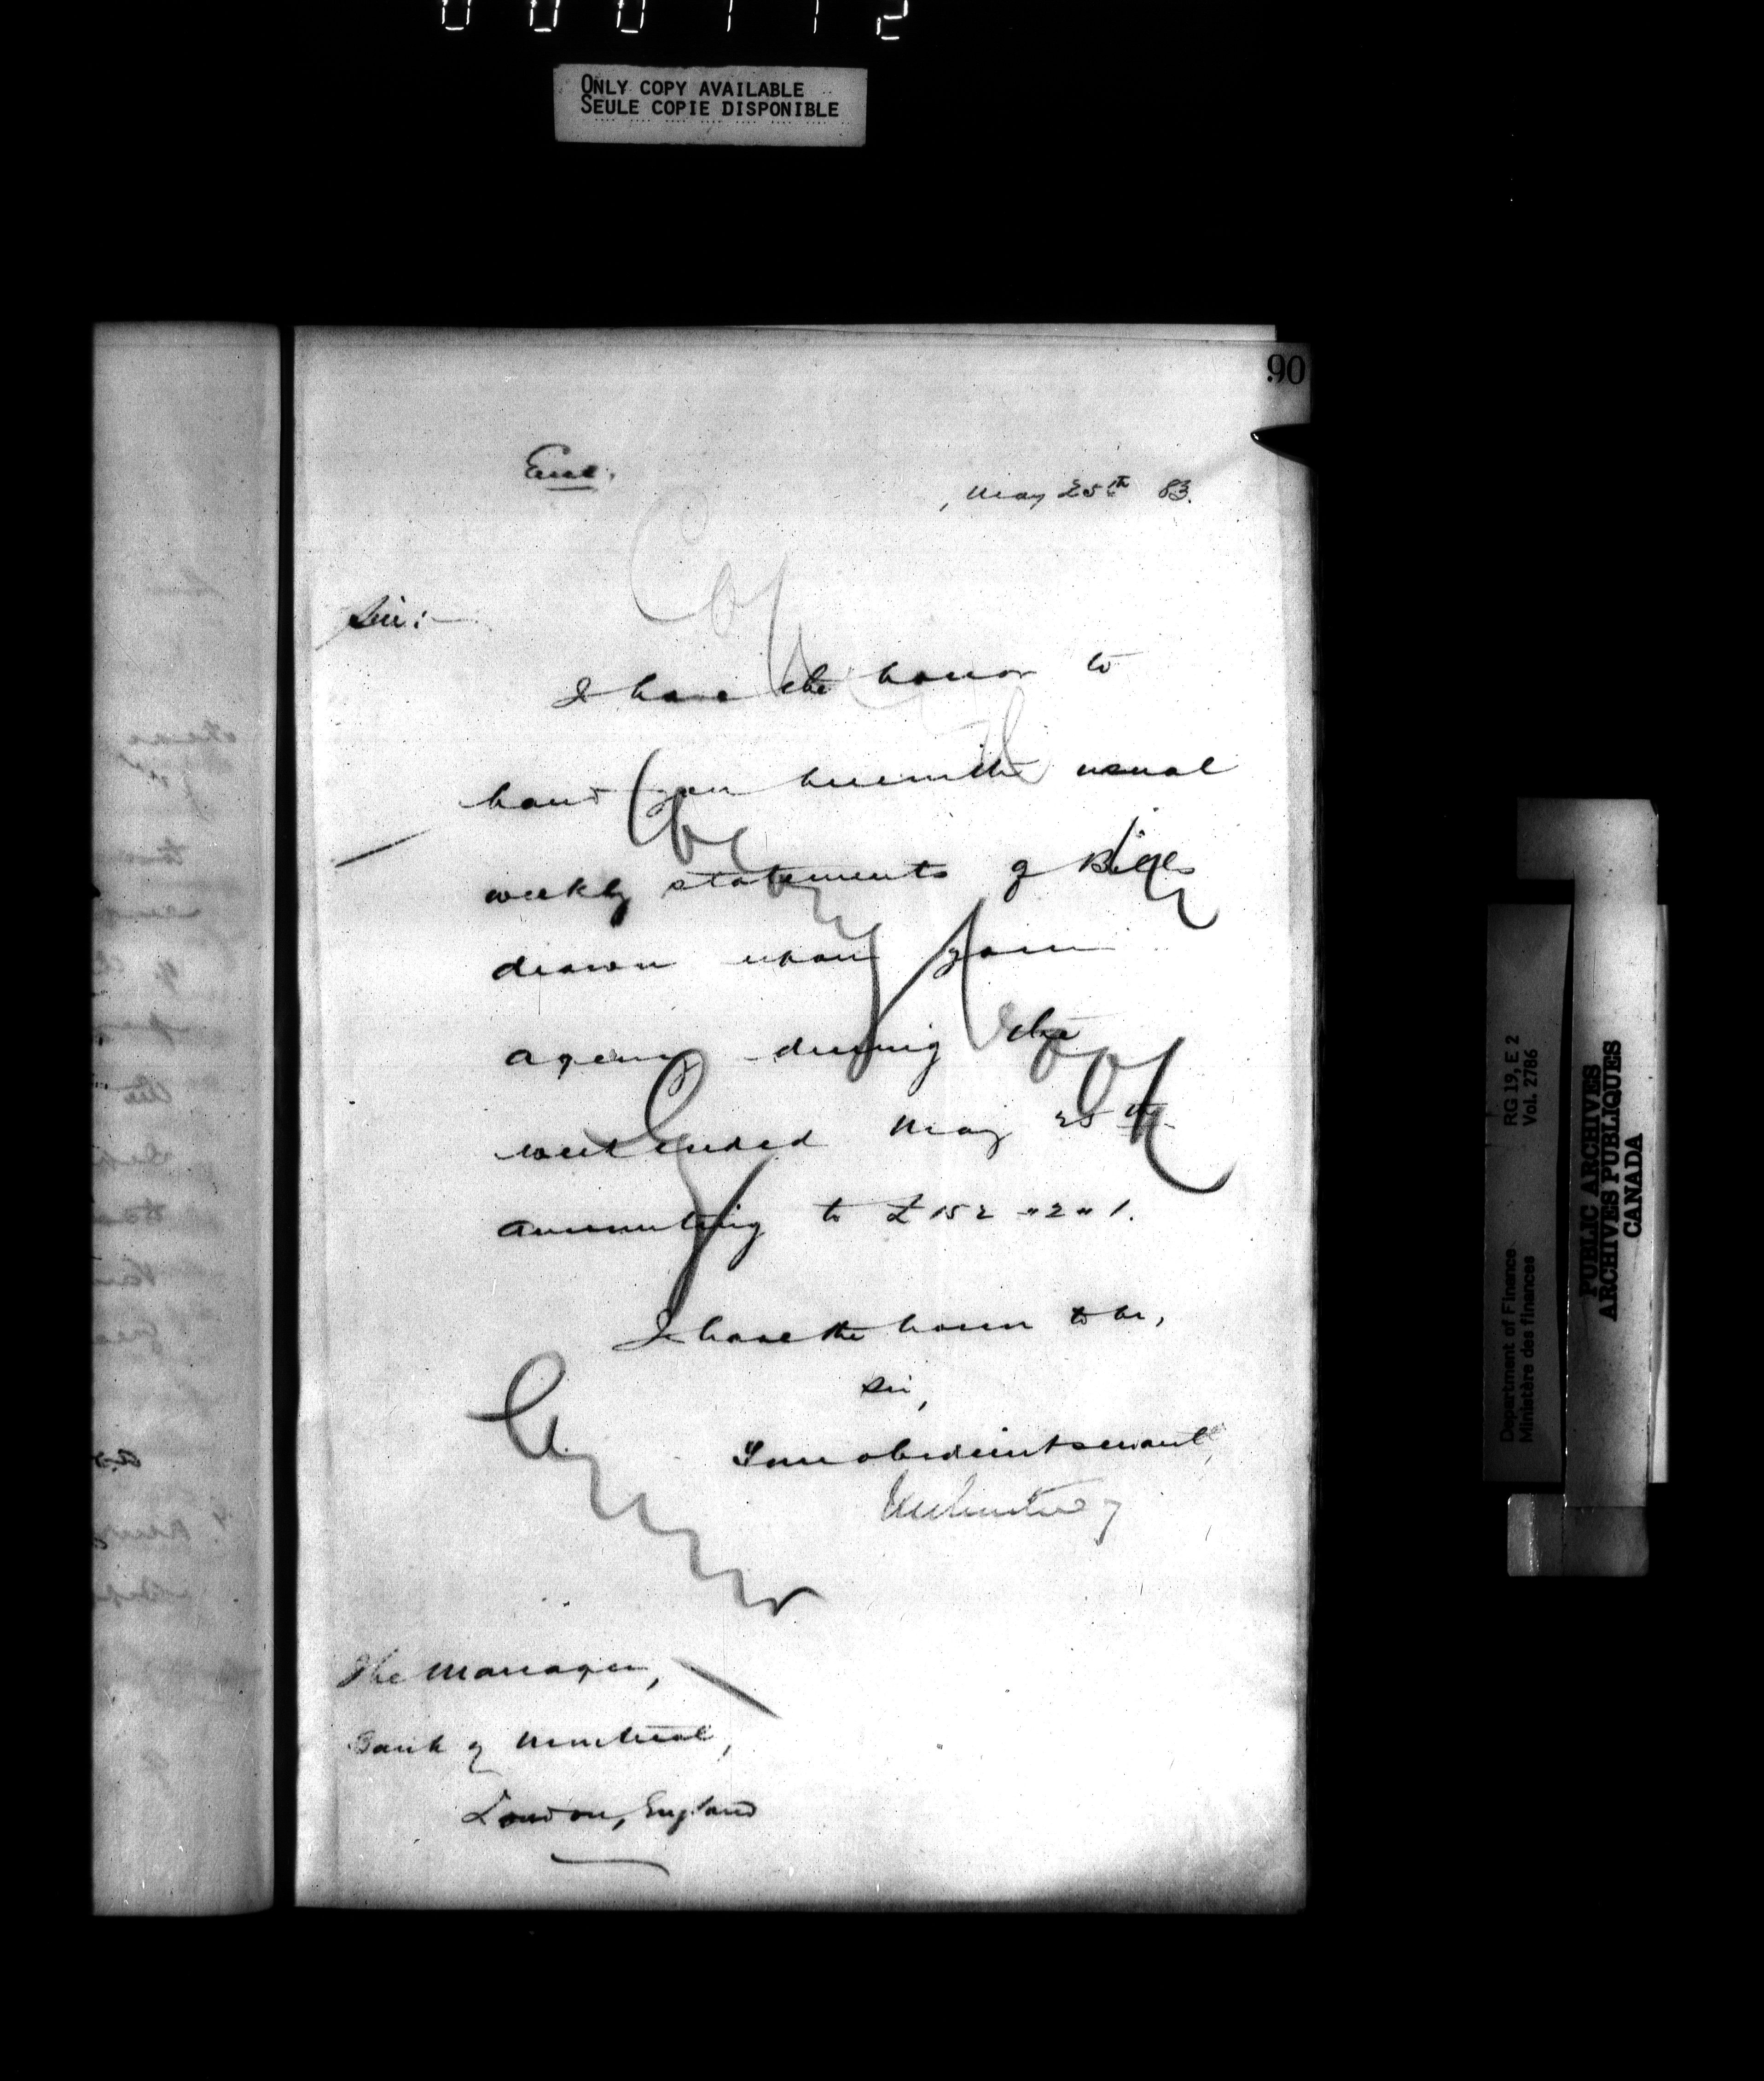 ONLY COPY AVAILABLE
SEULE COPIE DISPONIBLE
90
Encl.
, May 25th 83.
Sir:—
I have the honor to
hand you herewith usual
weekly statements of Bills
drawn upon your
agency during the
week ended May 25th
amounting to £152 "2" 1.
I have the honor to be,
Sir,
Your obedient servant
The Manager,
Bank of Montreal,
London, England
RG 19, E 2
Vol. 2786
Department of Finance
Ministère des finances
PUBLIC ARCHIVES
ARCHIVES PUBLIQUES
CANADA